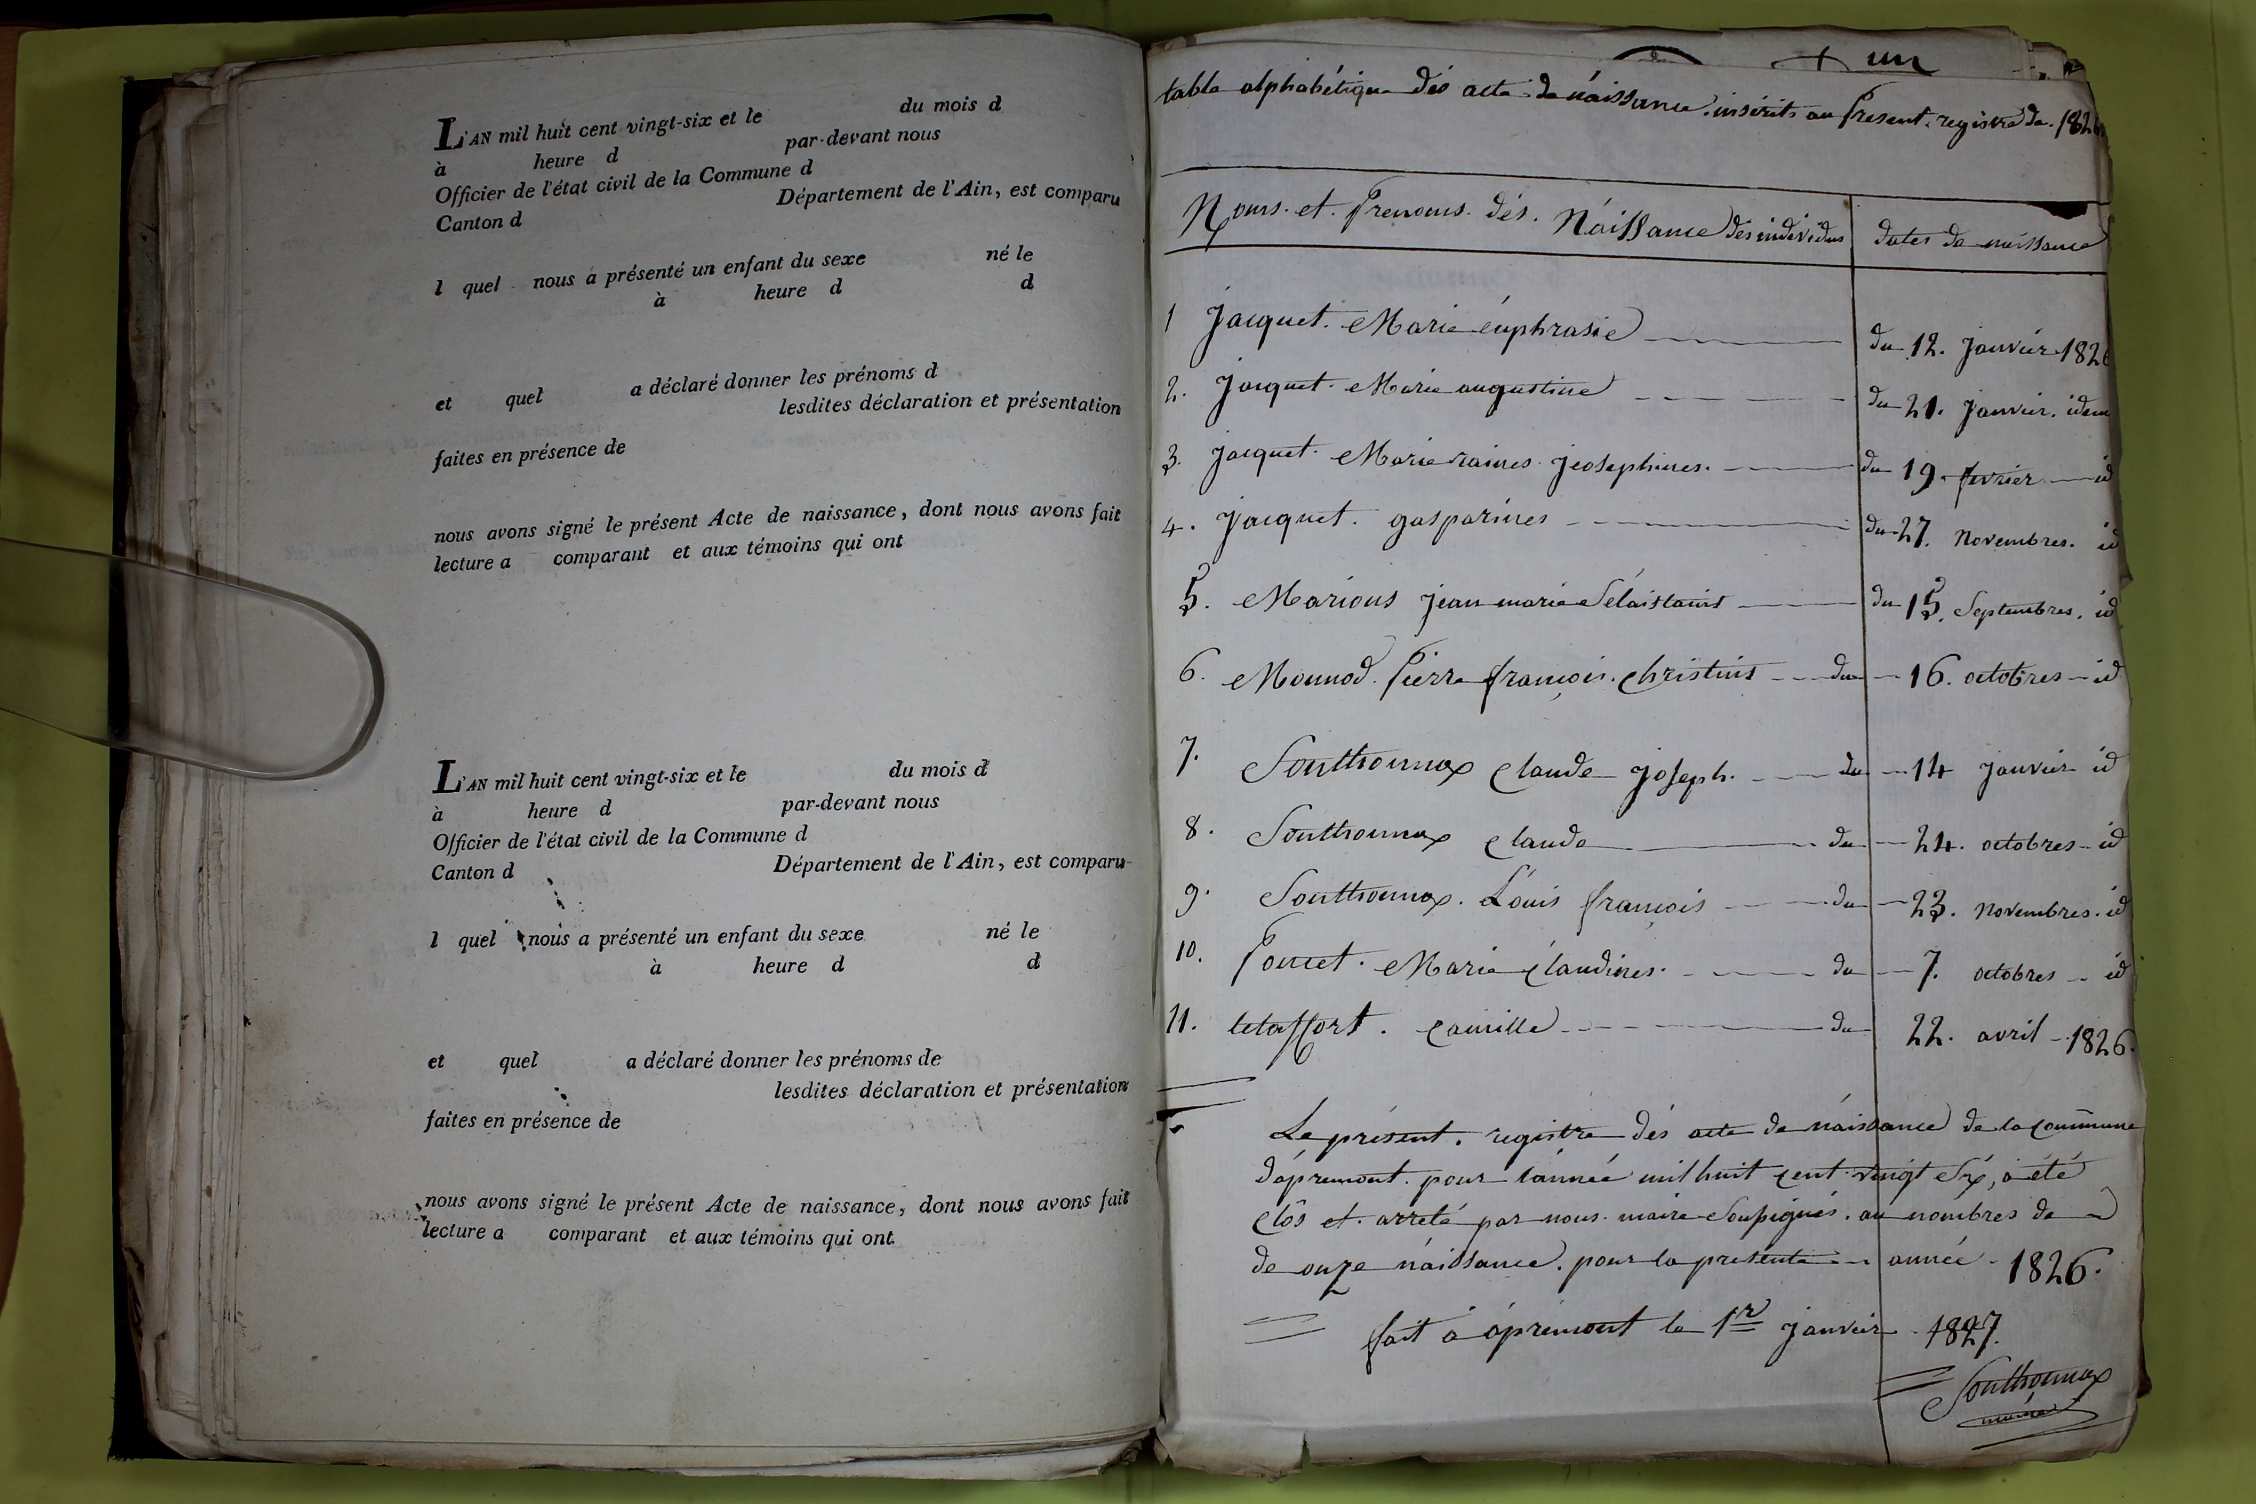 L'AN mil huit cent vingt-six et le du mois d
à heure d par-devant nous
Officier de l'état civil de la Commune d
Canton d Département de l'Ain, est comparu
l quel nous a présenté un enfant du sexe né le
à heure d d
et quel a déclaré donner les prénoms d
lesdites déclaration et présentation
faites en présence de
nous avons signé le présent Acte de naissance, dont nous avons fait
lecture a comparant et aux témoins qui ont
L'AN mil huit cent vingt-six et le du mois d
à heure d par-devant nous
Officier de l'état civil de la Commune d
Canton d Département de l'Ain, est comparu
l quel nous a présenté un enfant du sexe né le
à heure d d
et quel a déclaré donner les prénoms de
lesdites déclaration et présentation
faites en présence de
nous avons signé le présent Acte de naissance, dont nous avons fait
lecture a comparant et aux témoins qui ont
un
table alphabétique dés acte de náissance. inscrits au Present. registre de. 1826
Noms. et. Prenoms. dés. Náissance des individus dates de naissance
1 Jacquet. Marie éuphrasie du 12. Janvier 1826
2. Jacquet. Marie augustine du 21. Janvier. idem
3. Jacquet. Marie raines Jeosephines. du 19. fevrier id
4. Jacquet. gasparines du 27. Novembres. id
5. Marious Jean marie Sélaistains du 15. Septembres. id
6. Mounod. Pierre françois. Christins du 16. octobres id
7. Southonnax Claude Joseph. du 14 Janvier id
8. Southonnax Claude du 24. octobres id
9. Southonnax. Louis françois du 23. Novembres. id
10. Poncet. Marie Claudines. du 7. octobres id
11. tetaffort. Camille du 22. avril 1826.
Le présent. registre dés acte de náissance de la commune
dápremont. pour lánnée mil huit cent vingt six, a été
clôs et. arreté par nous. maire Soussignés. au nombres de
de onze náissance. pour la presente année 1826.
fait à ápremont le 1er Janvier 1827.
Southonnax
maire